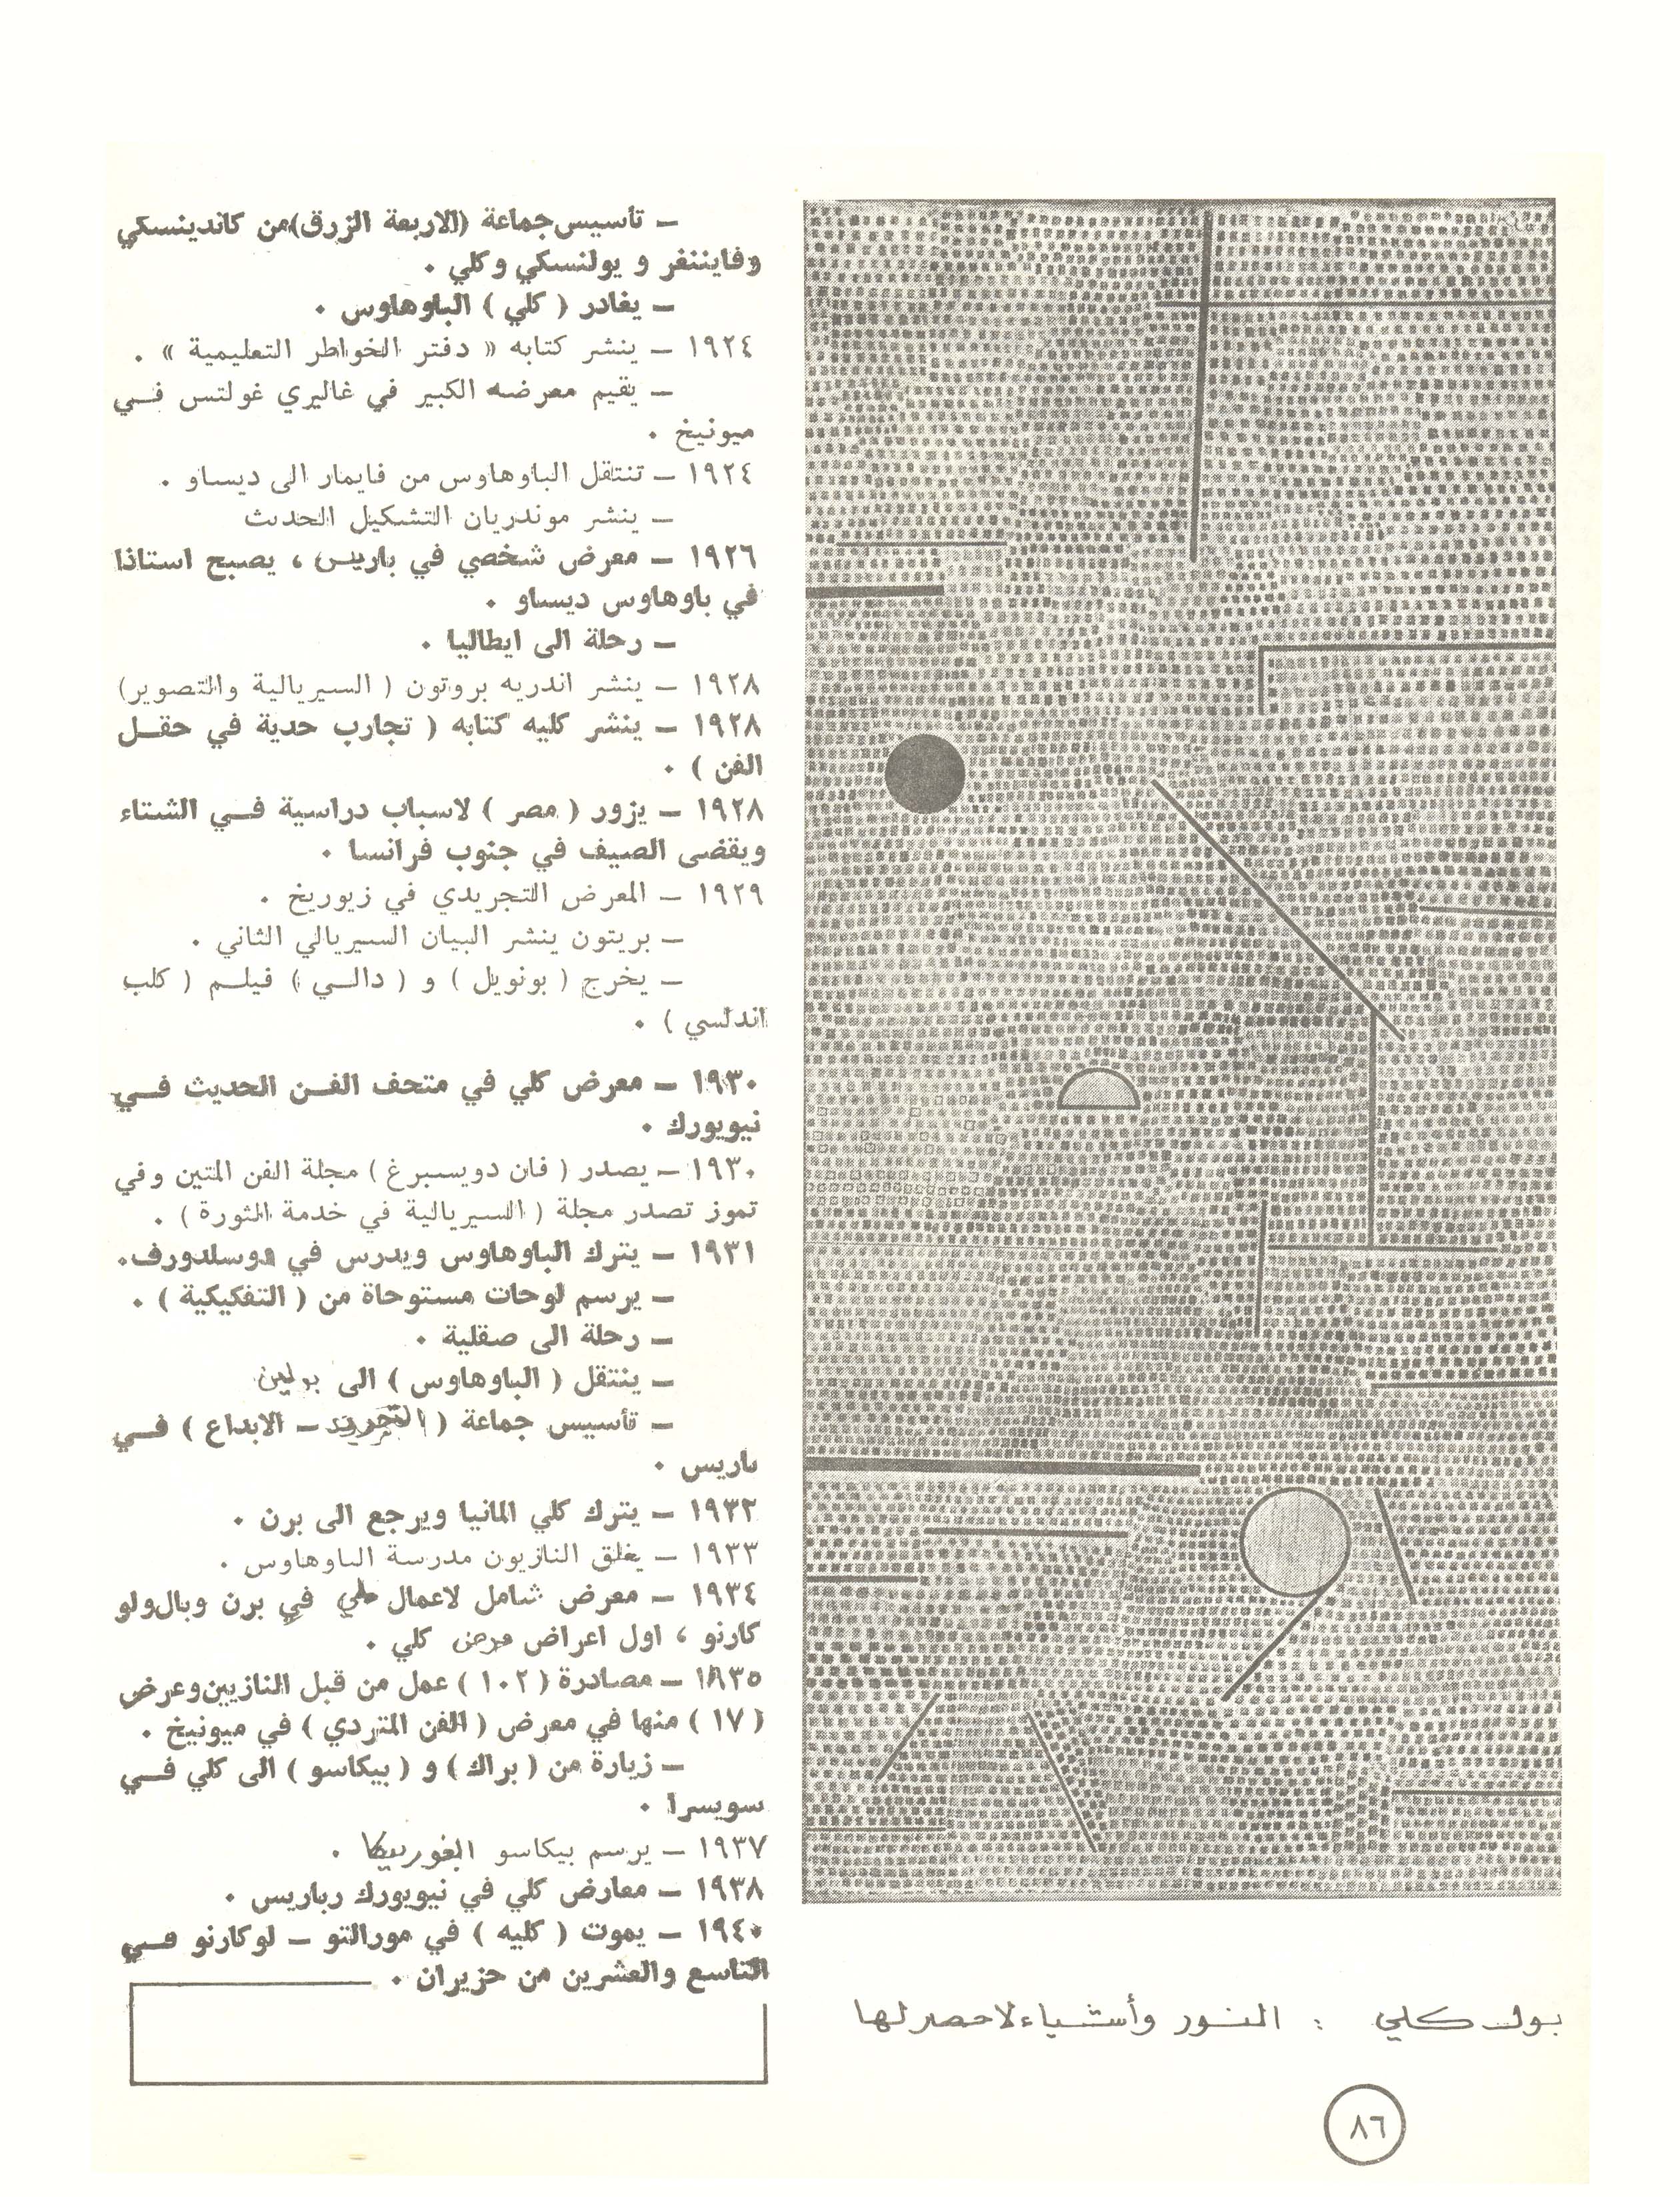 — تأسيس جماعة (الاربعة الزرق) من كاندينسكي
وفايننغر و يولنسكي وكلي .
— يغادر ( كلي ) الباوهاوس .
١٩٢٤ — ينشر كتابه « دفتر الخواطر التعليمية » .
— يقيم معرضه الكبير في غاليري غولتس فـي
ميونيخ .
١٩٢٤ — تنتقل الباوهاوس من فايمار الى ديساو .
— ينشر موندريان التشكيل الحديث
١٩٢٦ — معرض شخصي في باريس ، يصبح استاذا
في باوهاوس ديساو .
— رحلة الى ايطاليا .
١٩٢٨ — ينشر اندريه بروتون ( السيريالية والتصوير)
١٩٢٨ — ينشر كليه كتابه ( تجارب حدية في حقـل
الفن ) .
١٩٢٨ — يزور ( مصر ) لاسباب دراسية فـي الشتاء
ويقضى الصيف في جنوب فرانسا .
١٩٢٩ — المعرض التجريدي في زيوريخ .
— بريتون ينشر البيان السيريالي الثاني .
— يخرج ( بونويل ) و ( دالـي ) فيلـم ( كلب
اندلسي ) .
١٩٣٠ — معرض كلي في متحف الفـن الحديث فـي
نيويورك .
١٩٣٠ — يصدر ( فان دويسبرغ ) مجلة الفن المتين وفي
تموز تصدر مجلة ( السيريالية في خدمة الثورة ) .
١٩٣١ — يترك الباوهاوس ويدرس في دوسلدورف.
— يرسم لوحات مستوحاة من ( التفكيكية ) .
— رحلة الى صقلية .
— ينتقل ( الباوهاوس ) الى برلين
— تأسيس جماعة ( التجريد — الابداع ) فـي
باريس .
١٩٣٢ — يترك كلي المانيا ويرجع الى برن .
١٩٣٣ — يغلق النازيون مدرسة الباوهاوس .
١٩٣٤ — معرض شامل لاعمال كلي في برن وبال ولو
كارنو ، اول اعراض مرض كلي .
١٩٣٥ — مصادرة ( ١٠٢ ) عمل من قبل النازيين وعرض
( ١٧ ) منها في معرض ( الفن المتردي ) في ميونيخ .
— زيارة من ( براك ) و ( بيكاسو ) الى كلي فـي
سويسرا .
١٩٣٧ — يرسم بيكاسو الغورنيكا .
١٩٣٨ — معارض كلي في نيويورك رباريس .
١٩٤٠ — يموت ( كليه ) في مورالتو — لوكارنو فـي
التاسع والعشرين من حزيران .
بول كلي : النور وأشياء لا حصر لها
٨٦